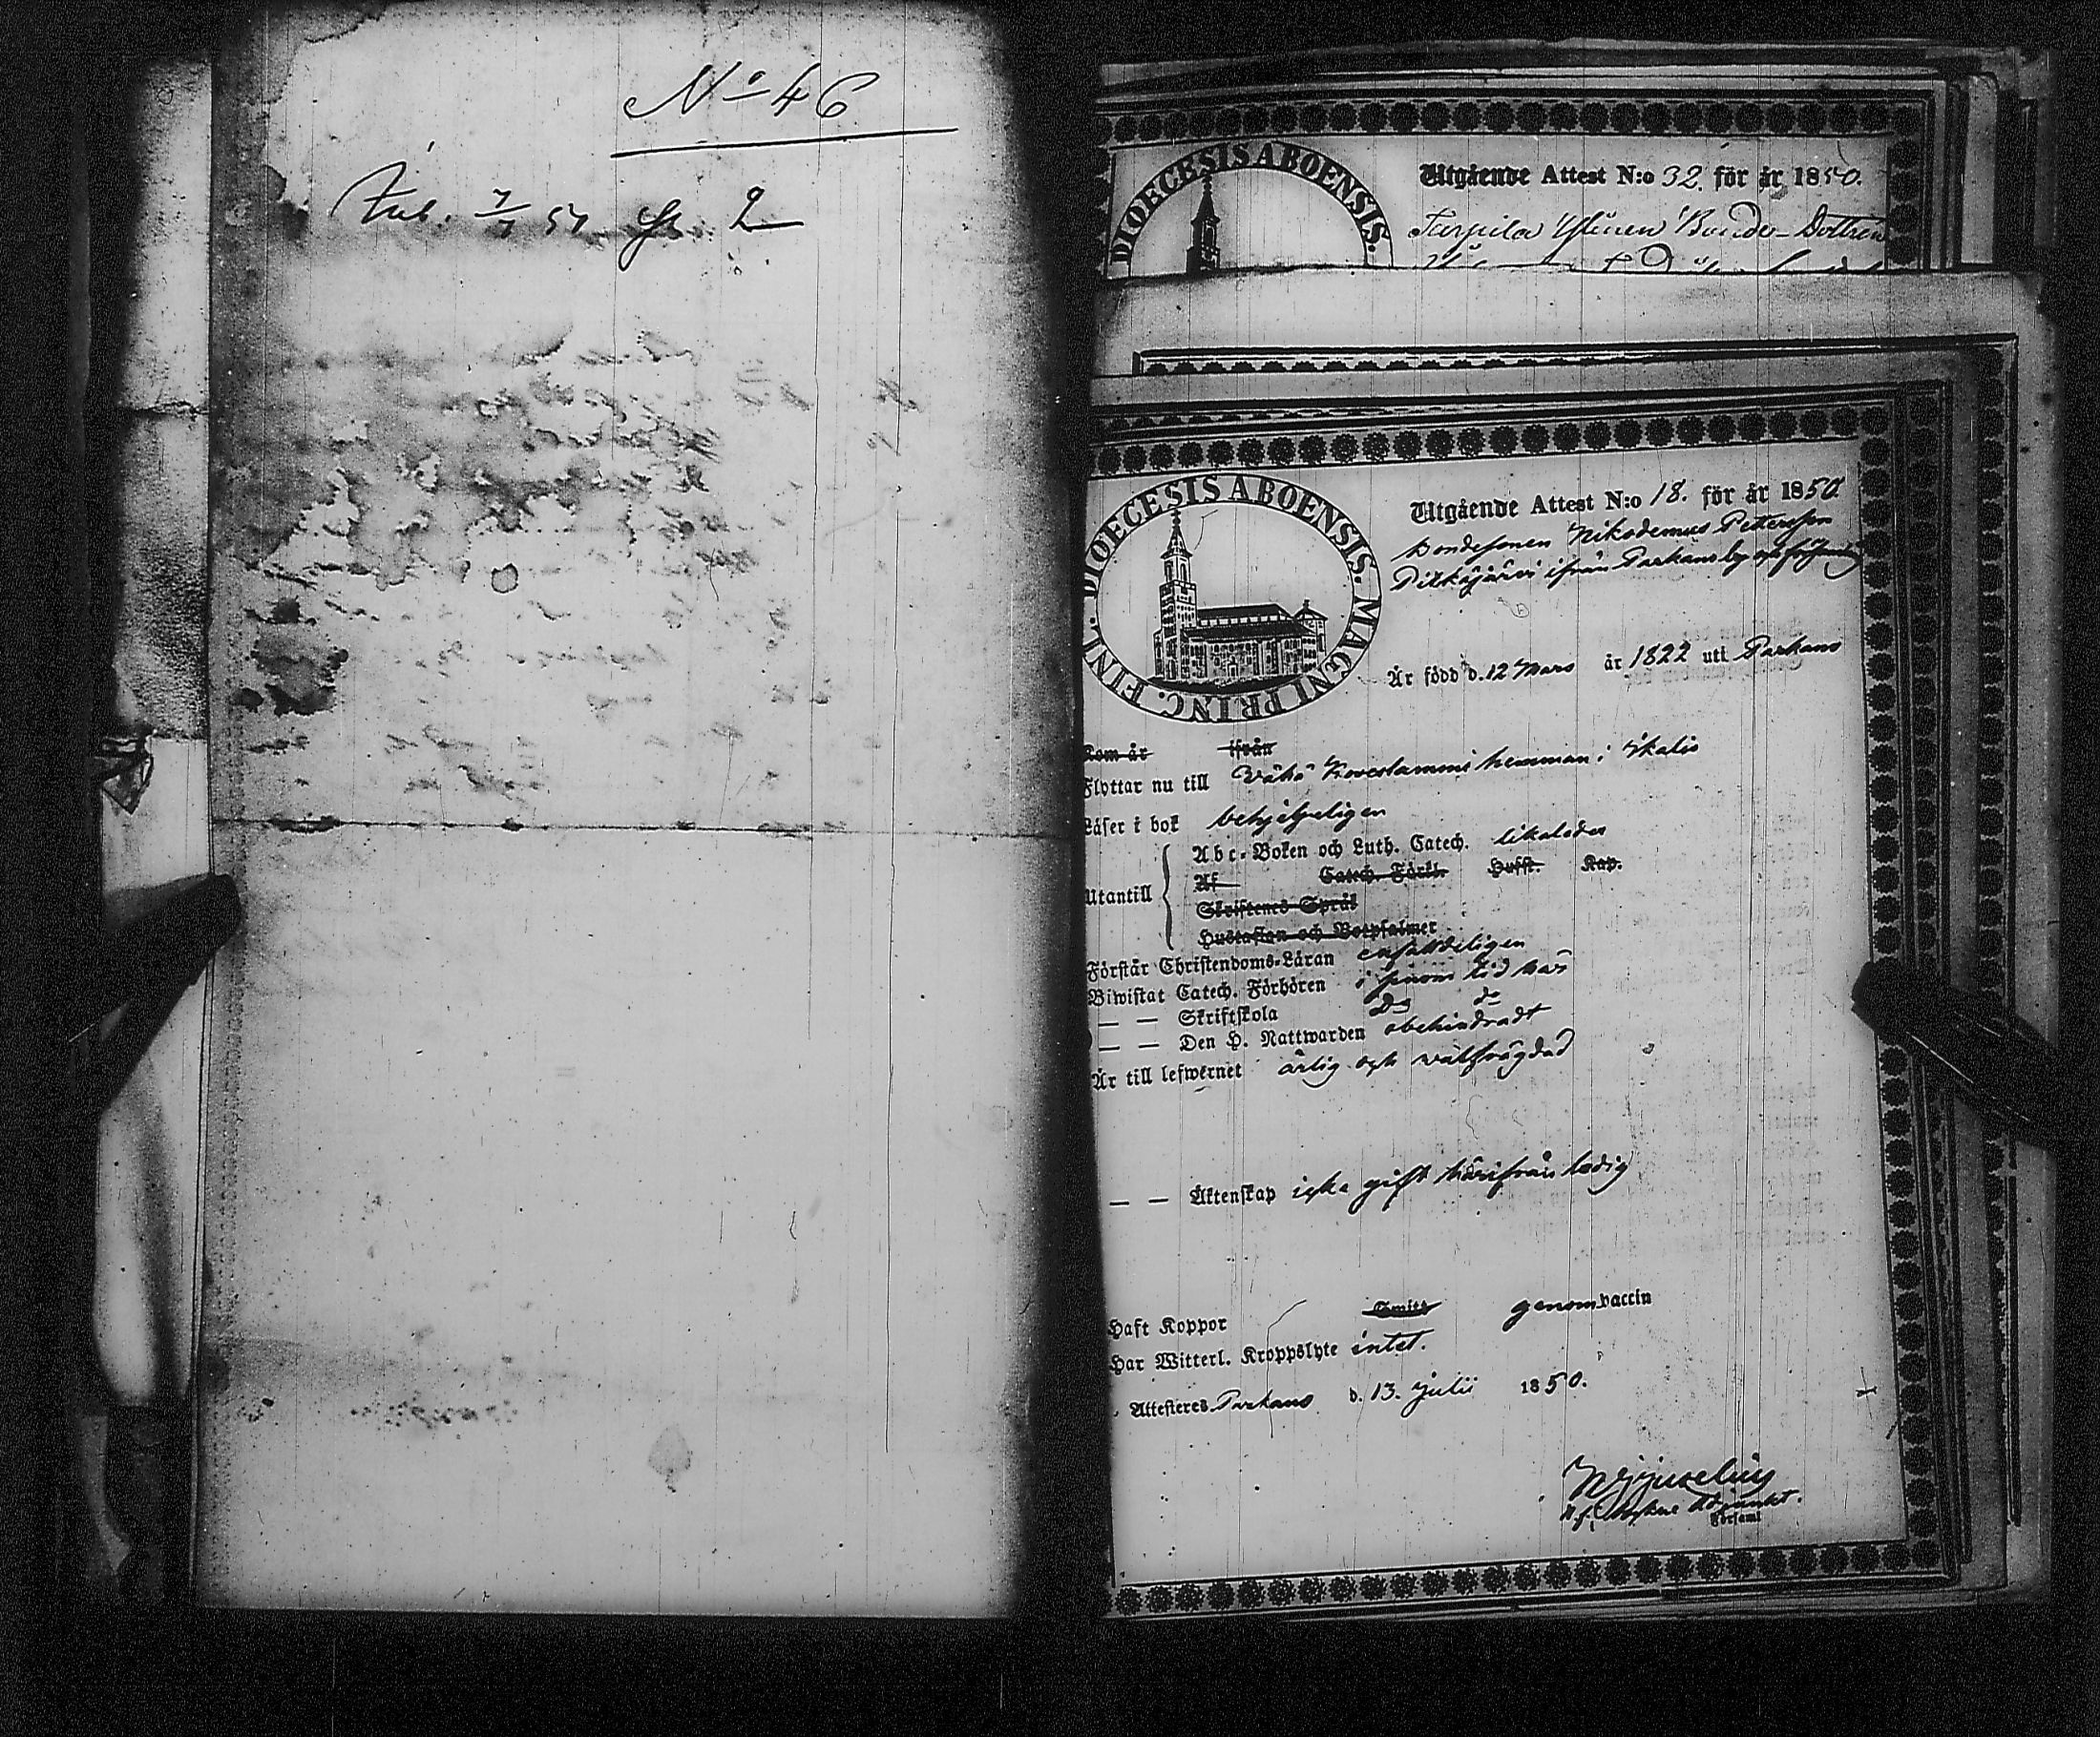 No 46
Inl. 7/7 51 S. 2
DIOECESIS ABOENSIS.
Utgående Attest N:o 32. för år 1850.
Tarpila Ylinen Bonde-Dottren
FINL. DIOECESIS ABOENSIS. MAGNI PRINC.
Utgående Attest N:o 18. för år 1850
Bondesonen Nikodemus Pettersson
Pitkäjärvi ifrån Parkano by och
Är född d. 12 Mars år 1822 uti Parkano
Kom år ifrån
Flyttar nu till Vähä Koveslammi hemman i Ikalis
Läser i bok behjelpeligen
Utantill
Abc-Boken och Luth. Catech. likaledes
Af Catech. Förkl. Hufst. Kap.
Skriftenes Språk
Hustaflan och Botpsalmer
Förstår Christendoms-Läran enfaldeligen
Biwistat Catech. Förhören i sinom tid här
— — Skriftskola Do do
— — Den H. Nattwarden obehindradt
Är till lefwernet ärlig och wälfrägdad
— — Äktenskap icke gift härifrån ledig
Haft Koppor Smitt genom vaccin
Har Witterl. Kroppslyte intet.
Attesteras Parkano d. 13. Julii 1850.
Församl